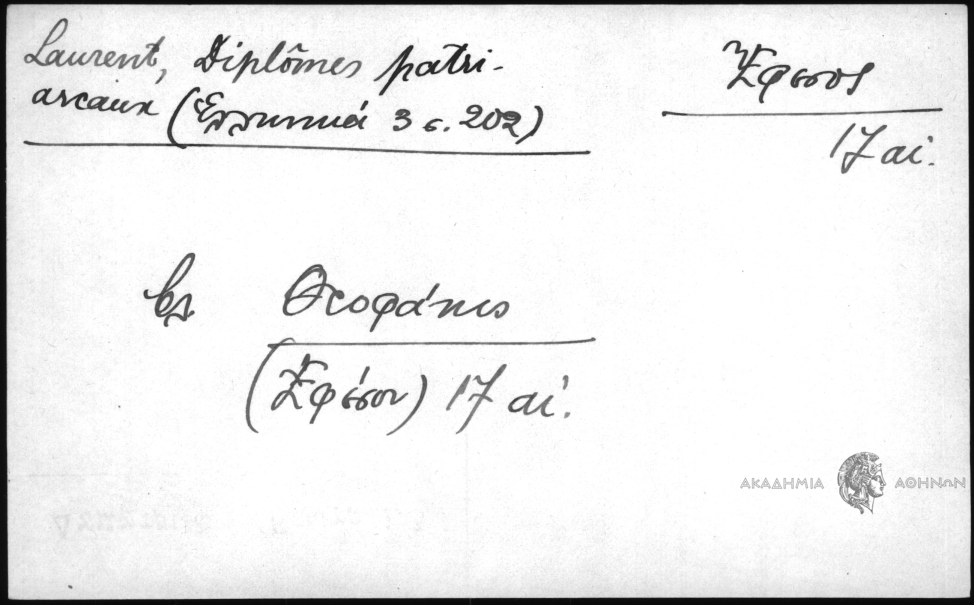 Laurent, Diplômes patri-
arcaux (Ἑλληνικά 3 σ. 202)
Ἔφεσος
17 αἰ.
βλ. Θεοφάνης
(Ἐφέσου) 17 αἰ.
ΑΚΑΔΗΜΙΑ ΑΘΗΝΩΝ